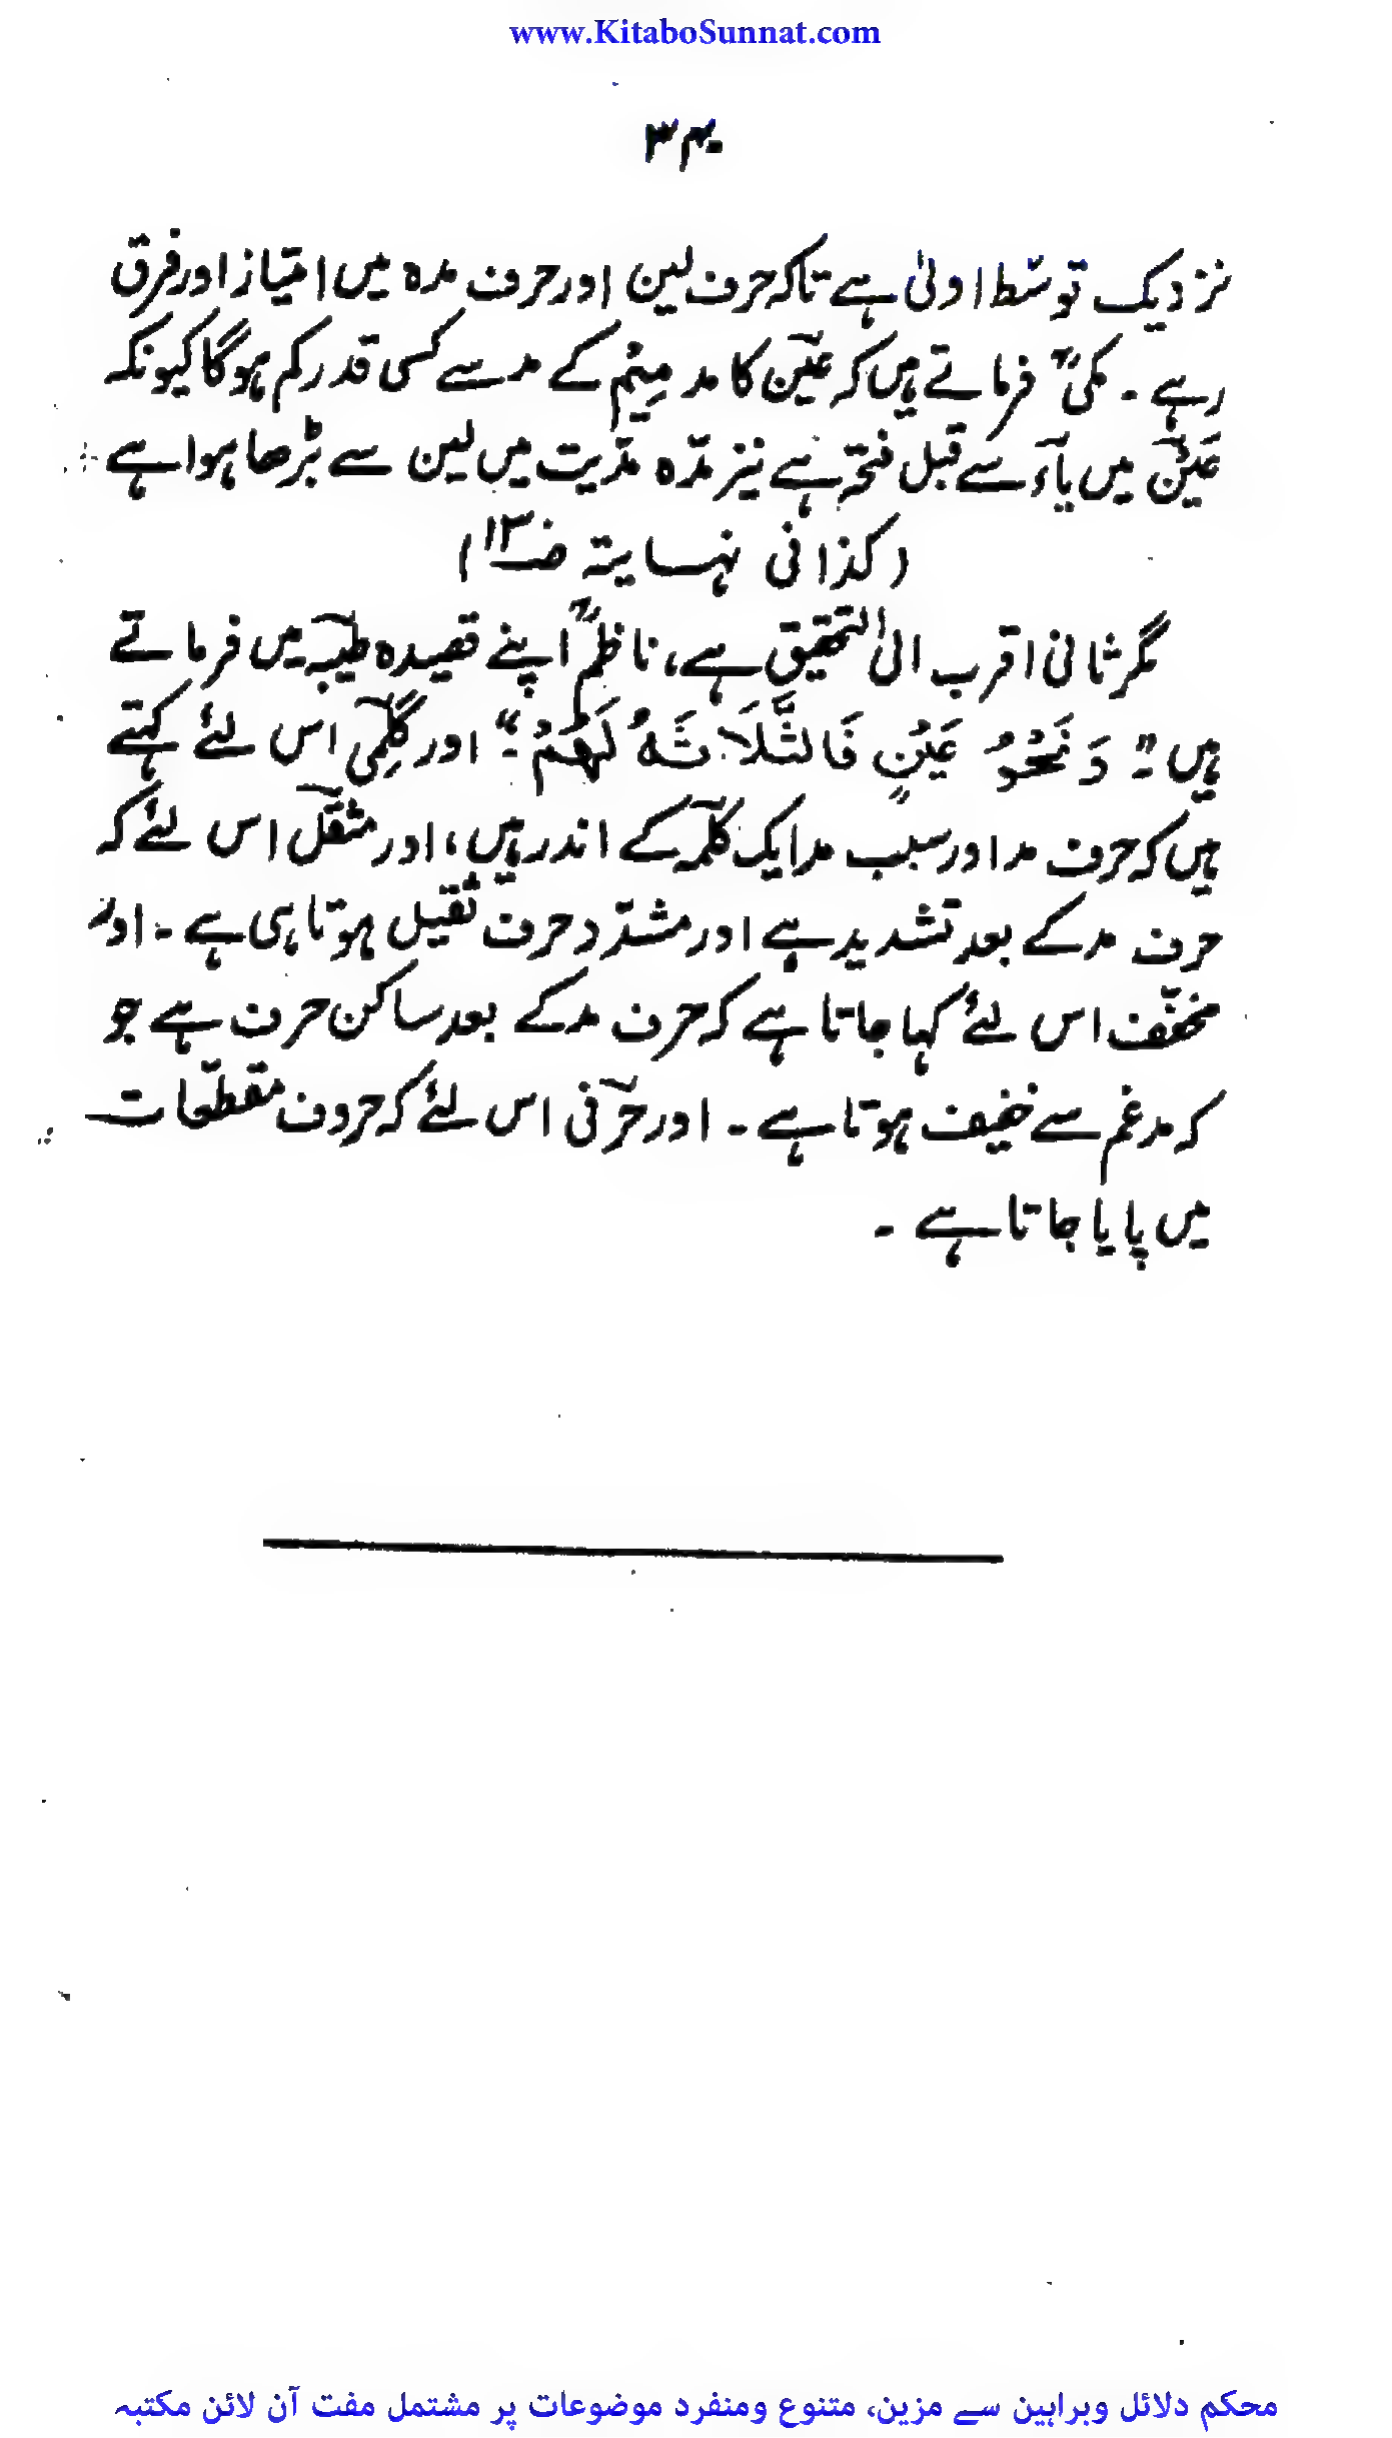 www.KitaboSunnat.com
۳۴
نزدیک توسّط اولیٰ ہے تاکہ حرف لین اور حرف مدہ میں امتیاز اور فرق
رہے ۔ مکیؒ فرماتے ہیں کہ عین کا مد مِیْم کے مد سے کسی قدر کم ہوگا کیونکہ
عَیْن میں یاء سے قبل فتحہ ہے نیز مدّہ مدّیت میں لین سے بڑھا ہوا ہے
(کذا فی نہایۃ
مگر ثانی اقرب الی التحقیق ہے، ناظمؒ اپنے قصیدہ طیبہ میں فرماتے
ہیں ”وَنَحْوُ عَیْنٍ فَالثَّلَاثَۃُ لَھُمْ“ اور کِلْمِی اس لئے کہتے
ہیں کہ حرف مد اور سبب مد ایک کلمہ کے اندر ہیں، اور مثقّل اس لئے کہ
حرف مد کے بعد تشدید ہے اور مشدّد حرف ثقیل ہوتا ہی ہے ۔ اور
مخفّف اس لئے کہا جاتا ہے کہ حرف مد کے بعد ساکن حرف ہے جو
کہ مدغم سے خفیف ہوتا ہے ۔ اور حرفی اس لئے کہ حروف مقطّعات
میں پایا جاتا ہے ۔
محکم دلائل وبراہین سے مزین، متنوع ومنفرد موضوعات پر مشتمل مفت آن لائن مکتبہ